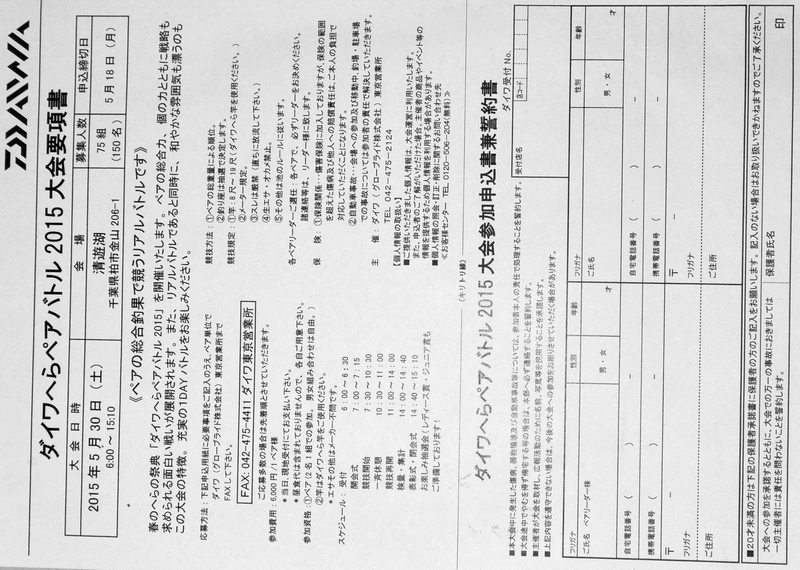 DAIWA
ダイワへらペアバトル 2015 大会要項書
大会日時
会場
募集人数
申込締切日
2015年5月30日（土）
6:00 ～ 15:10
清遊湖
千葉県柏市金山 206-1
75組
（150名）
5月18日（月）
《ペアの総合釣果で競うリアルバトルです》
春のへらの祭典「ダイワへらペアバトル 2015」を開催いたします。ペアの総合力、個の力とともに戦略も
求められる面白い戦いが展開されます。また、リアルバトルであると同時に、和やかな雰囲気も漂うのも
この大会の特徴。充実の1DAYバトルをお楽しみください。
応募方法：下記申込用紙に必要事項をご記入のうえ、ペア単位で
ダイワ（グローブライド株式会社）東京営業所まで
FAXして下さい。
FAX: 042-475-4411 ダイワ東京営業所
ご応募多数の場合は先着順とさせていただきます。
参加費用：6,000円/1ペア様
＊当日、現地受付にてお支払い下さい。
＊昼食代は含まれておりませんので、各自ご用意下さい。
参加資格：①ペア（2名1組での参加。男女組み合わせは自由。）
②竿はダイワへら竿をご使用ください。
＊エサその他はメーカー不問です。
スケジュール：受付 6:00 ～ 6:30
開会式 7:00 ～ 7:15
競技開始 7:30 ～ 10:30
一斉休憩 10:30 ～ 11:00
競技再開 11:00 ～ 14:00
検量・集計 14:00 ～ 14:40
表彰式・閉会式 14:40 ～ 15:10
お楽しみ抽選会（レディース賞・ジュニア賞も
ご準備しております！
競技方法：①ペアの総重量による順位。
②釣り座は抽選で決定します。
競技規定：①竿：8尺～19尺（ダイワへら竿を使用ください。）
②メーター規定。
③スレは厳禁（直ちに放流して下さい。）
④生エサ・オカメ禁止。
⑤その他は池のルールに従います。
各ペアリーダーご選任：各ペアで、必ずリーダーをお決めください。
諸連絡等は、リーダー様に致します。
保険：①保険関係・傷害保険に加入しておりますが、保険の範囲
を超えた傷病及び他人への賠償責任は、ご本人の負担で
対応していただくことになります。
②自動車事故…会場への参加及び移動中、釣場・駐車場
での事故については参加者の責任で解決していただきます。
主催：ダイワ（グローブライド株式会社）東京営業所
TEL 042-475-2124
【個人情報の取扱い】
■ご提供いただきました個人情報は、大会運営に利用いたします。
また、申込者のご了解がいただけた場合、主催者の商品やイベント等の
情報を提供するため個人情報を利用する場合があります。
■個人情報の照会・訂正・削除に関するお問い合わせ先
≪お客様センター TEL 0120-506-204（無料）≫
（キリトリ線）
ダイワへらペアバトル 2015 大会参加申込書兼誓約書
ダイワ受付No.
店コード
■本大会中に発生した傷病、器物損壊及び自動車事故等については、参加者本人の責任で処理することを誓約します。
■大会途中でやむを得ず帰宅する等の場合は、本部へ必ず連絡することを誓約します。
■主催者が大会を取材し、広報活動のために名前、写真等を使用することを承諾します。
■上記内容を遵守できない場合は、今後の大会への参加をお断りさせていただく場合があります。
受付店名
フリガナ
性別
年齢
ご氏名 ペアリーダー様
男・女
才
自宅電話番号 （ ） －
携帯電話番号 （ ） －
フリガナ
〒 －
ご住所
フリガナ
性別
年齢
ご氏名
男・女
才
自宅電話番号 （ ） －
携帯電話番号 （ ） －
フリガナ
〒 －
ご住所
■20才未満の方は下記の保護者承諾書に保護者の方のご記入をお願いします。記入のない場合はお取り扱いできかねますのでご了承ください。
大会への参加を承諾するとともに、大会での万一の事故におきましては
一切主催者には責任を問わないことを誓約します。
保護者氏名
印